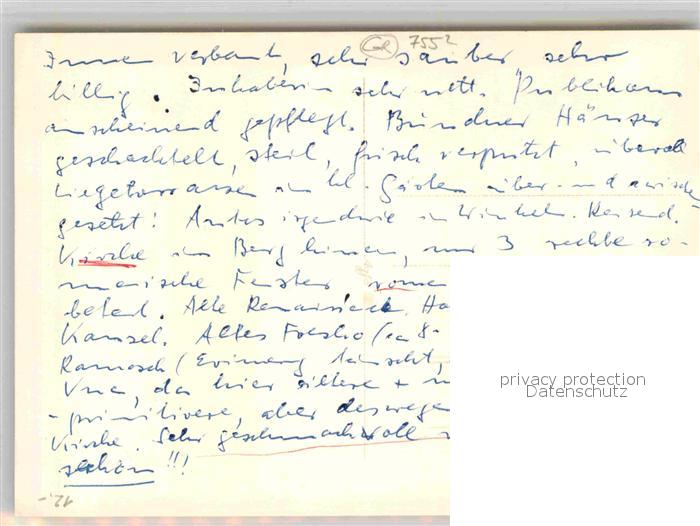 GR 7552
Innen verbaut, sehr sauber sehr
billig. Inhaberin sehr nett. Publikum
anscheinend gepflegt. Bündner Häuser
geschachtelt, steil, frisch verputzt, überall
Liegeterrassen im kl. Garten über- und zwischen
gesetzt! Autos irgendwie in Winkeln. Reizend.
Kirche im Berg hinein, nur 3 rechte ro-
manische Fenster
Alte Renaiss.
Kanzel. Altes Fresko (ca 8-
Ramosch (Erinnerg täuscht,
Vna, da hier ältere +
-primitivere, aber deswege
Kirche. Sehr geschmackvoll
schön!!!
privacy protection
Datenschutz
12,-